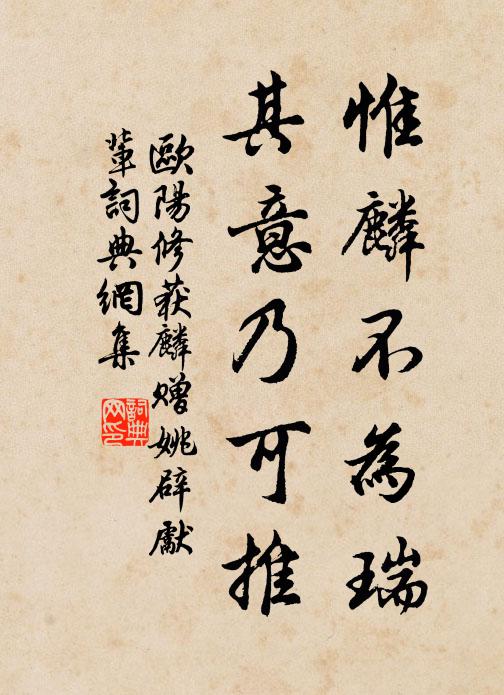 惟麟不為瑞
其意乃可推
歐陽修获麟贈姚辟獻
輩詞典網集
詞典
网印